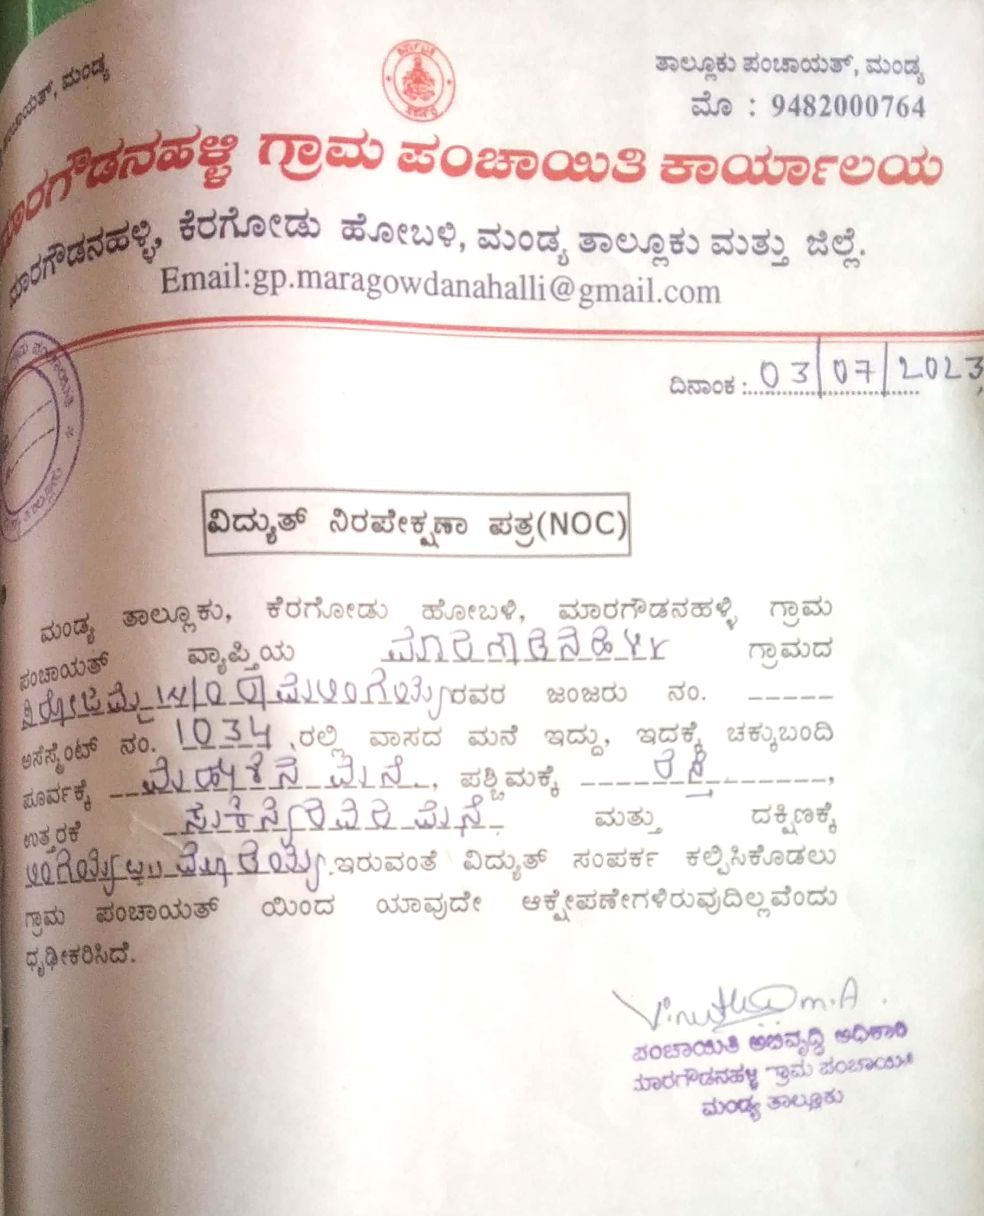 ಪಂಚಾಯತ್, ಮಂಡ್ಯ
ತಾಲ್ಲೂಕು ಪಂಚಾಯತ್, ಮಂಡ್ಯ
ಮೊ : 9482000764
ಮಾರಗೌಡನಹಳ್ಳಿ ಗ್ರಾಮ ಪಂಚಾಯಿತಿ ಕಾರ್ಯಾಲಯ
ಮಾರಗೌಡನಹಳ್ಳಿ, ಕೆರಗೋಡು ಹೋಬಳಿ, ಮಂಡ್ಯ ತಾಲ್ಲೂಕು ಮತ್ತು ಜಿಲ್ಲೆ.
Email:gp.maragowdanahalli@gmail.com
ದಿನಾಂಕ : 03/07/2023
ವಿದ್ಯುತ್ ನಿರಪೇಕ್ಷಣಾ ಪತ್ರ(NOC)
ಮಂಡ್ಯ ತಾಲ್ಲೂಕು, ಕೆರಗೋಡು ಹೋಬಳಿ, ಮಾರಗೌಡನಹಳ್ಳಿ ಗ್ರಾಮ
ಪಂಚಾಯತ್ ವ್ಯಾಪ್ತಿಯ ಮಾರಗೌಡನಹಳ್ಳಿ ಗ್ರಾಮದ
ರವರ ಜಂಜರು ನಂ. -----
ಅಸೆಸ್ಮೆಂಟ್ ನಂ. 1034 ರಲ್ಲಿ ವಾಸದ ಮನೆ ಇದ್ದು, ಇದಕ್ಕೆ ಚಕ್ಕುಬಂದಿ
ಪೂರ್ವಕ್ಕೆ ಮನೆ, ಪಶ್ಚಿಮಕ್ಕೆ ರಸ್ತೆ,
ಉತ್ತರಕೆ ಮನೆ ಮತ್ತು ದಕ್ಷಿಣಕ್ಕೆ
ಇರುವಂತೆ ವಿದ್ಯುತ್ ಸಂಪರ್ಕ ಕಲ್ಪಿಸಿಕೊಡಲು
ಗ್ರಾಮ ಪಂಚಾಯತ್ ಯಿಂದ ಯಾವುದೇ ಆಕ್ಷೇಪಣೇಗಳಿರುವುದಿಲ್ಲವೆಂದು
ಧೃಢೀಕರಿಸಿದೆ.
ಪಂಚಾಯಿತಿ ಅಭಿವೃದ್ಧಿ ಅಧಿಕಾರಿ
ಮಾರಗೌಡನಹಳ್ಳಿ ಗ್ರಾಮ ಪಂಚಾಯಿತಿ
ಮಂಡ್ಯ ತಾಲ್ಲೂಕು